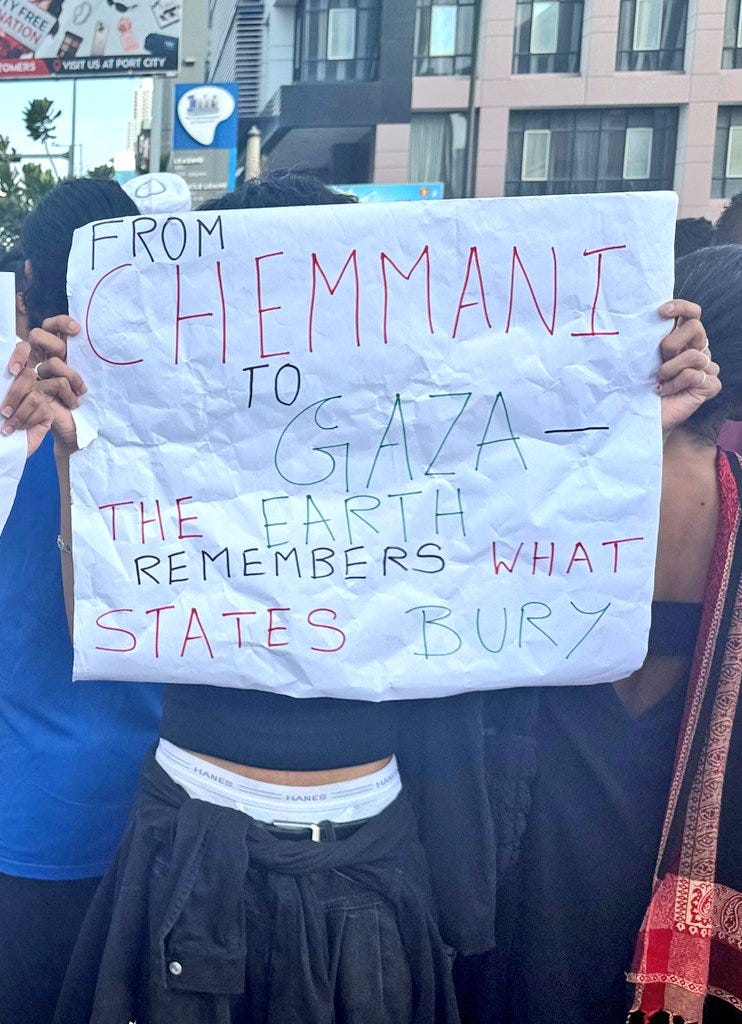 TY FREE
NATION
TOMERS VISIT US AT PORT CITY
LEASING
FROM
CHEMMANI
TO
GAZA —
THE EARTH
REMEMBERS WHAT
STATES BURY
HANES HANES HANES